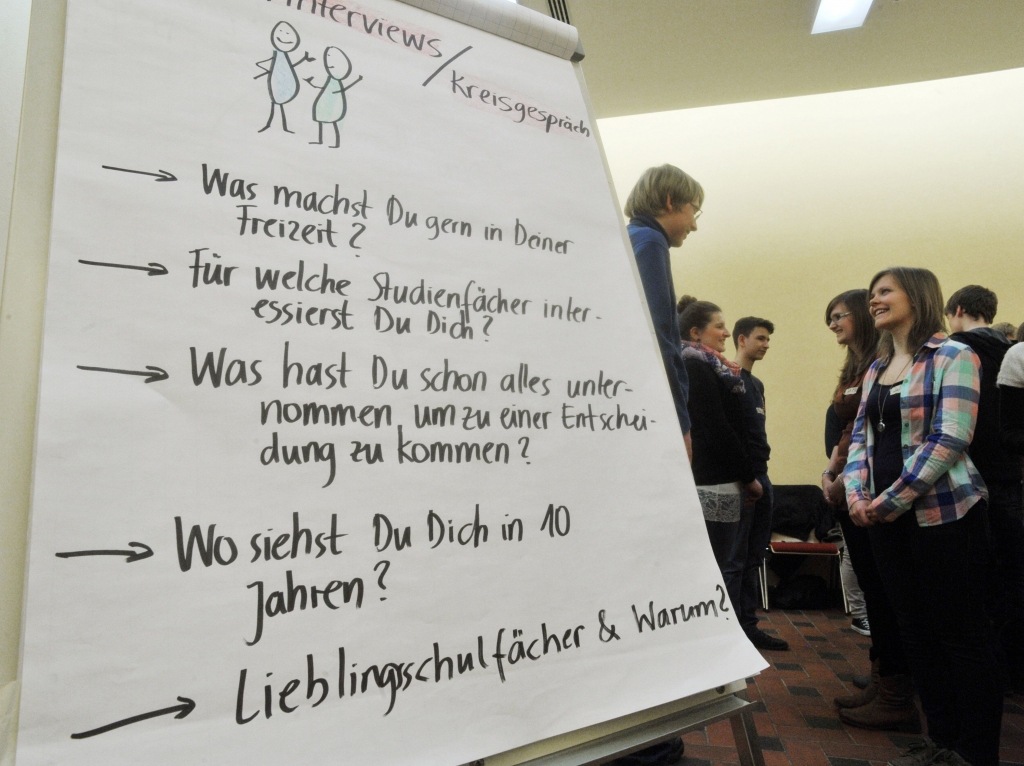 interviews /
Kreisgespräch
Was machst Du gern in Deiner
Freizeit?
Für welche Studienfächer inter-
essierst Du Dich?
Was hast Du schon alles unter-
nommen, um zu einer Entschei-
dung zu kommen?
Wo siehst Du Dich in 10
Jahren?
Lieblingsschulfächer & Warum?